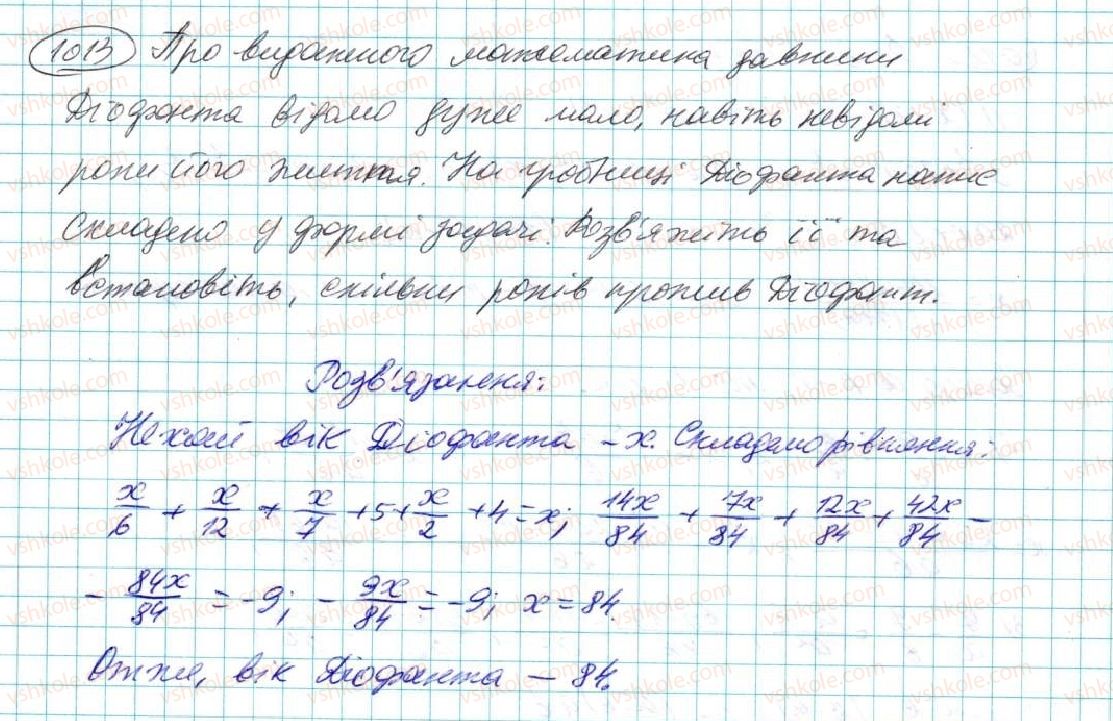 1013 Про видатного математика давнини
Діофанта відомо дуже мало, навіть невідомі
роки його життя. На гробниці Діофанта напис
складено у формі задачі. Розв'яжіть її та
встановіть, скільки років прожив Діофант.
Розв'язання:
Нехай вік Діофанта - x. Складемо рівняння:
x/6 + x/12 + x/7 + 5 + x/2 + 4 = x; 14x/84 + 7x/84 + 12x/84 + 42x/84 -
- 84x/84 = -9; - 9x/84 = -9; x = 84.
Отже, вік Діофанта - 84.